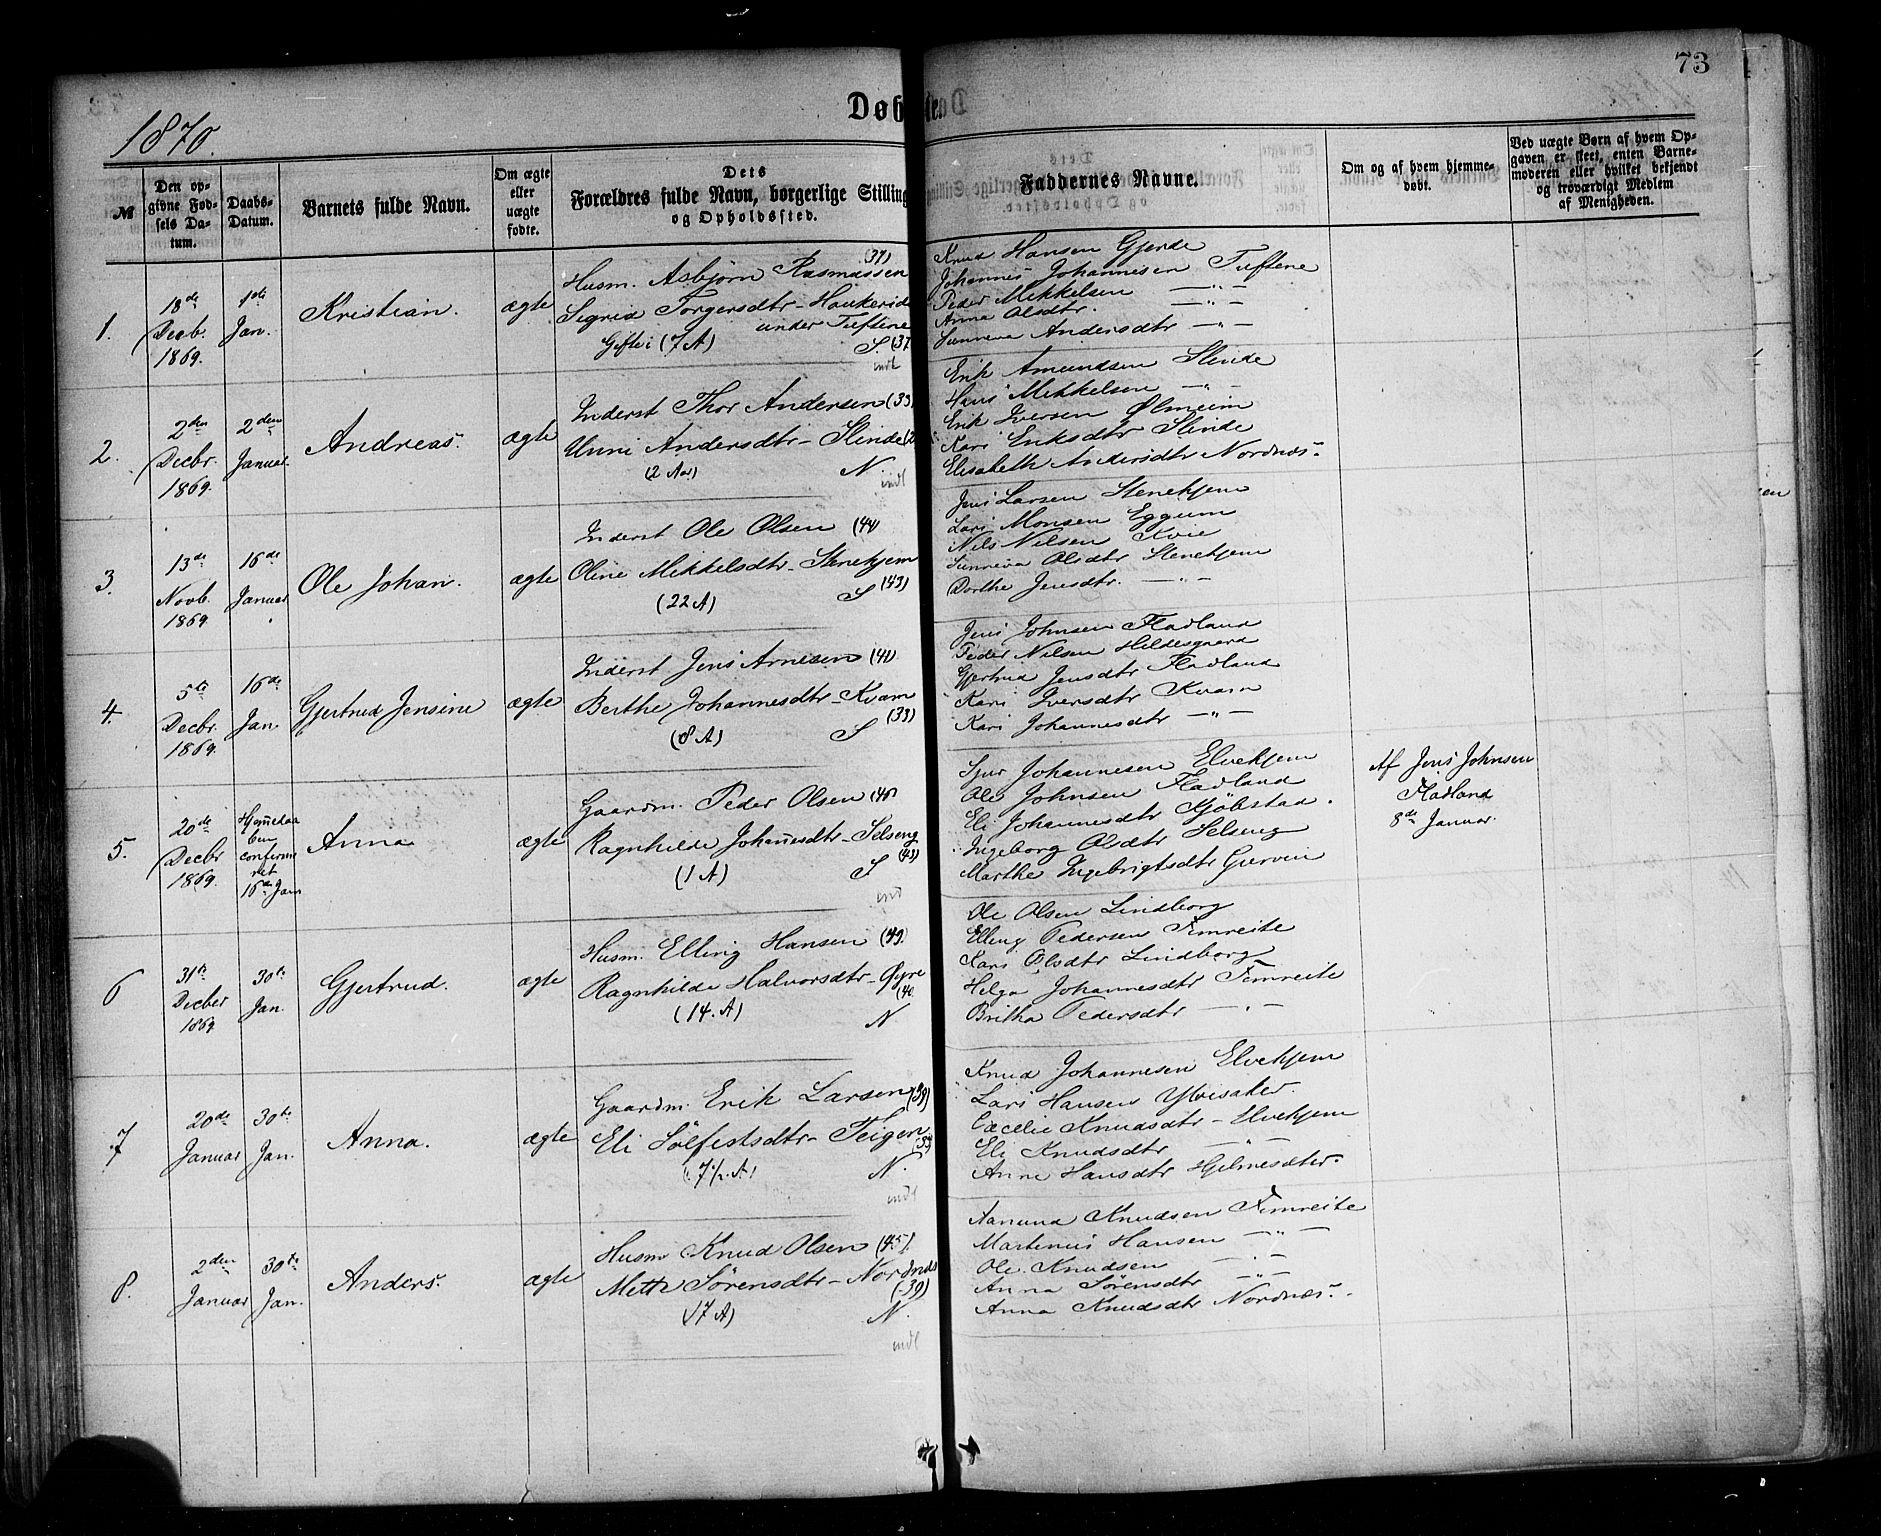 73
1870.
Døb
№
Den opgivne Fødsels Datum.
Daabs-Datum.
Barnets fulde Navn.
Om ægte eller uægte fødte.
Dets Forældres fulde Navn, borgerlige Stilling og Opholdssted.
Faddernes Navne.
Om og af hvem hjemmedøbt.
Ved uægte Børn af hvem Opgaven er skeet, enten Barnemoderen eller hvilket bekjendt og troværdigt Medlem af Menigheden.
1.
18de Decb. 1869.
1ste Jan.
Kristian.
ægte
Husm. Asbjørn Rasmussen (37)
Sigrid Torgersdtr – Haukerid
under Tuftene
Gifte i (7 A) S. (37
indl
Knud Hansen Gjerde
Johannes Johannesen Tuftene
Peder Mikkelsen —"—
Anna Olsdtr. —"—
Sunneva Andersdtr —"—
2.
2den Decbr. 1869.
2den Januar.
Andreas.
ægte
Inderst Thor Andersen (33)
Unni Andersdtr – Slinde (2
(2 Aar) N.
indl
Erik Amundsen Slinde
Hans Mikkelsen —"—
Erik Iversen Ølmeim
Kari Eriksdtr Slinde
Elisabeth Andersdtr Nordnæs.
3.
13de Novb. 1869
16de Januar.
Ole Johan.
ægte
Inderst Ole Olsen (44)
Oline Mikkelsdtr – Stenehjem
(22 A) S (43)
Jens Larsen Stenehjem
Lars Monsen Eggum
Nils Nilsen Kvie
Sunneva Olsdtr Stenehjem
Dorthe Jensdtr. —"—
4.
5te Decbr. 1869.
16de Jan.
Gjertrud Jensine
ægte
Inderst Jens Arnesen (41)
Berthe Johannesdtr – Kvam
(8 A) S (33)
Jens Johnsen Fladland
Peder Nilsen Hildesgaard
Gjertrud Jensdtr Fladland
Kari Iversdtr Kvam
Kari Johannesdtr —"—
5.
20de Decbr 1869.
Hjemedaaben confirmeret 16de Jan
Anna
ægte
Gaardm. Peder Olsen (40)
Ragnhilde Johansdtr – Selseng
(1 A) S (43)
ind
Sjur Johannesen Elvehjem
Ole Johnsen Fladland
Eli Johannesdtr Kjöbstad.
Ingeborg Olsdtr Selseng
Marthe Ingebrigtsdtr Gurvin
Af Jens Johnsen
Fladland
8de Januar.
6
31te Decber 1869
30te Jan.
Gjertrud.
ægte
Husm. Elling Hansen (49.
Ragnhilde Halvorsdtr – Øyre
(14. A) N (40.
Ole Olsen Lindborg
Elling Pedersen Fimreite
Kari Olsdtr Lindborg
Helga Johannesdtr Fimreite
Britha Pedersdtr —"—
7
20de Januar
30te Jan.
Anna.
ægte
Gaardm. Erik Larsen (38)
Eli Sølfestsdtr – Teigen
(7½. A) N.
indl
Knud Johannesen Elvehjem
Lars Hansen Ylvisaker.
Cæcelie Knudsdtr – Elvehjem
Eli Knudsdtr —"—
Anne Hansdtr
8.
2den Januar
30te Jan.
Anders.
ægte
Husm Knud Olsen (45).
Mette Sørensdtr – Nordnæs
(17 A) N. (39)
indl
Aamund Knudsen Fimreite
Martinus Hansen —"—
Ole Knudsen —"—
Anna Sørensdtr —"—
Anna Knudsdtr Nordnæs.